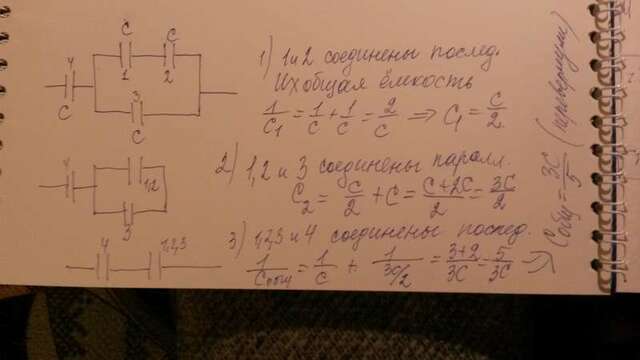 C
C
1
2
4
C
3
C
1) 1 и 2 соединены послед.
Их общая ёмкость
1/C₁ = 1/C + 1/C = 2/C => C₁ = C/2
4
1,2
3
2) 1,2 и 3 соединены паралл.
C₂ = C/2 + C = (C+2C)/2 = 3C/2
4
1,2,3
3) 1,2,3 и 4 соединены послед.
1/Cобщ = 1/C + 1/(3C/2) = (3+2)/3C = 5/3C =>
Cобщ = 3C/5 (перевернули)